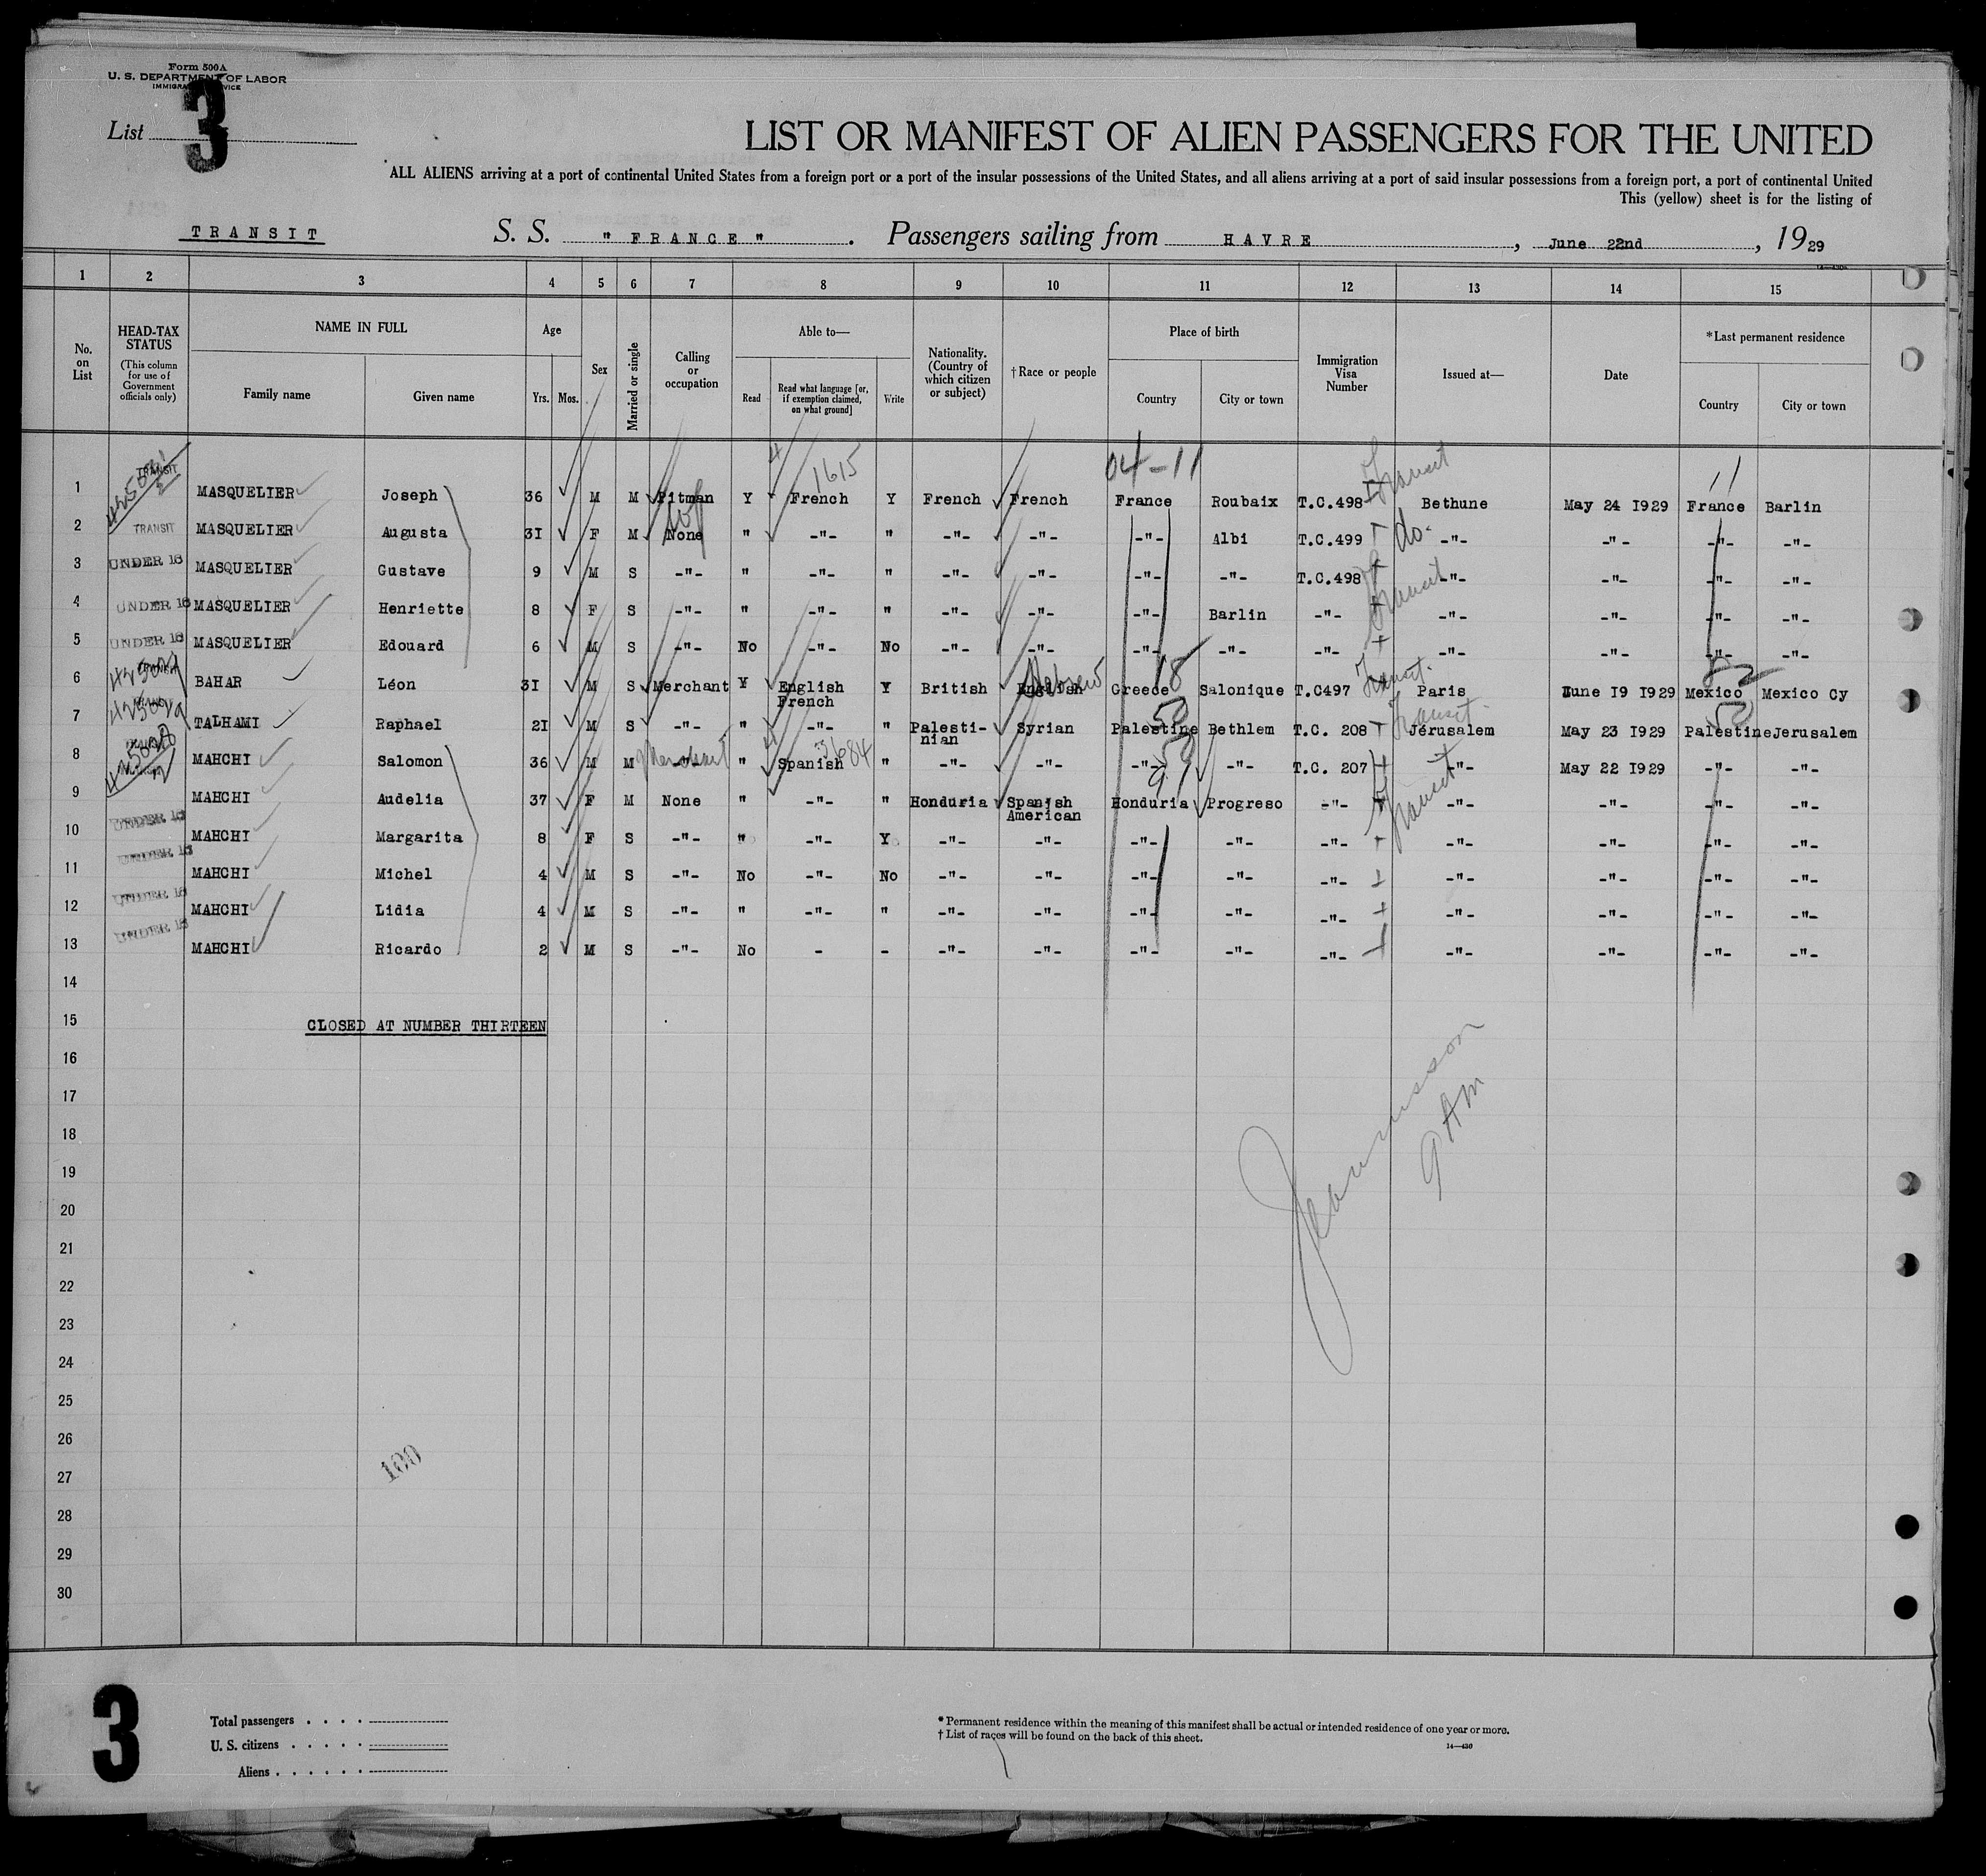 Form 500A
U. S. DEPARTMENT OF LABOR
List 3
LIST OR MANIFEST OF ALIEN PASSENGERS FOR THE UNITED
ALL ALIENS arriving at a port of continental United States from a foreign port or a port of the insular possessions of the United States, and all aliens arriving at a port of said insular possessions from a foreign port, a port of continental United
This (yellow) sheet is for the listing of
TRANSIT S. S. "FRANCE". Passengers sailing from HAVRE, June 22nd, 1929
1 2 3 4 5 6 7 8 9 10 11 12 13 14 15
No. on List
HEAD-TAX STATUS (This column for use of Government officials only)
NAME IN FULL Family name Given name
Age Yrs. Mos.
Sex
Married or single
Calling or occupation
Able to— Read Read what language [or, if exemption claimed, on what ground] Write
Nationality. (Country of which citizen or subject)
†Race or people
Place of birth Country City or town
Immigration Visa Number
Issued at—
Date
*Last permanent residence Country City or town
04-11 1615 Transit 11
1 TRANSIT MASQUELIER Joseph 36 M M Pitman Y French Y French French France Roubaix T.C.498 Bethune May 24 I929 France Barlin
2 TRANSIT MASQUELIER Augusta 3I F M None " -"- " -"- -"- -"- Albi T.C.499 do- -"- -"- -"- -"-
3 UNDER 16 MASQUELIER Gustave 9 M S -"- " -"- " -"- -"- -"- -"- T.C.498 -"- -"- -"- -"-
4 UNDER 16 MASQUELIER Henriette 8 F S -"- " -"- " -"- -"- -"- Barlin -"- Transit -"- -"- -"- -"-
5 UNDER 16 MASQUELIER Edouard 6 M S -"- No -"- No -"- -"- -"- -"- -"- -"- -"- -"- -"-
6 BAHAR Léon 3I M S Merchant Y English French Y British English Hebrew Greece 18 Salonique T.C497 Transit Paris June I9 I929 Mexico Mexico Cy
7 TALHAMI Raphael 2I M S -"- " -"- " Palestinian Syrian Palestine Bethlem T.C. 208 Transit Jérusalem May 23 I929 Palestine Jerusalem
8 MAHCHI Salomon 36 M M Merchant -"- " Spanish 3684 " -"- -"- -"- -"- T.C. 207 -"- May 22 I929 -"- -"-
9 MAHCHI Audelia 37 F M None " -"- " Honduria Spanish American Honduria Progreso -"- Transit -"- -"- -"- -"-
10 UNDER 16 MAHCHI Margarita 8 F S -"- " -"- Y -"- -"- -"- -"- -"- -"- -"- -"- -"-
11 UNDER 16 MAHCHI Michel 4 M S -"- No -"- No -"- -"- -"- -"- -"- -"- -"- -"- -"-
12 UNDER 16 MAHCHI Lidia 4 M S -"- " -"- " -"- -"- -"- -"- -"- -"- -"- -"- -"-
13 UNDER 16 MAHCHI Ricardo 2 M S -"- No - - -"- -"- -"- -"- -"- -"- -"- -"- -"-
14
15 CLOSED AT NUMBER THIRTEEN
16
17
18
9 AM
19
20
21
22
23
24
25
26
100
27
28
29
30
3
Total passengers . . . .
U. S. citizens . . . . .
Aliens . . . . . .
* Permanent residence within the meaning of this manifest shall be actual or intended residence of one year or more.
† List of races will be found on the back of this sheet.
14—430